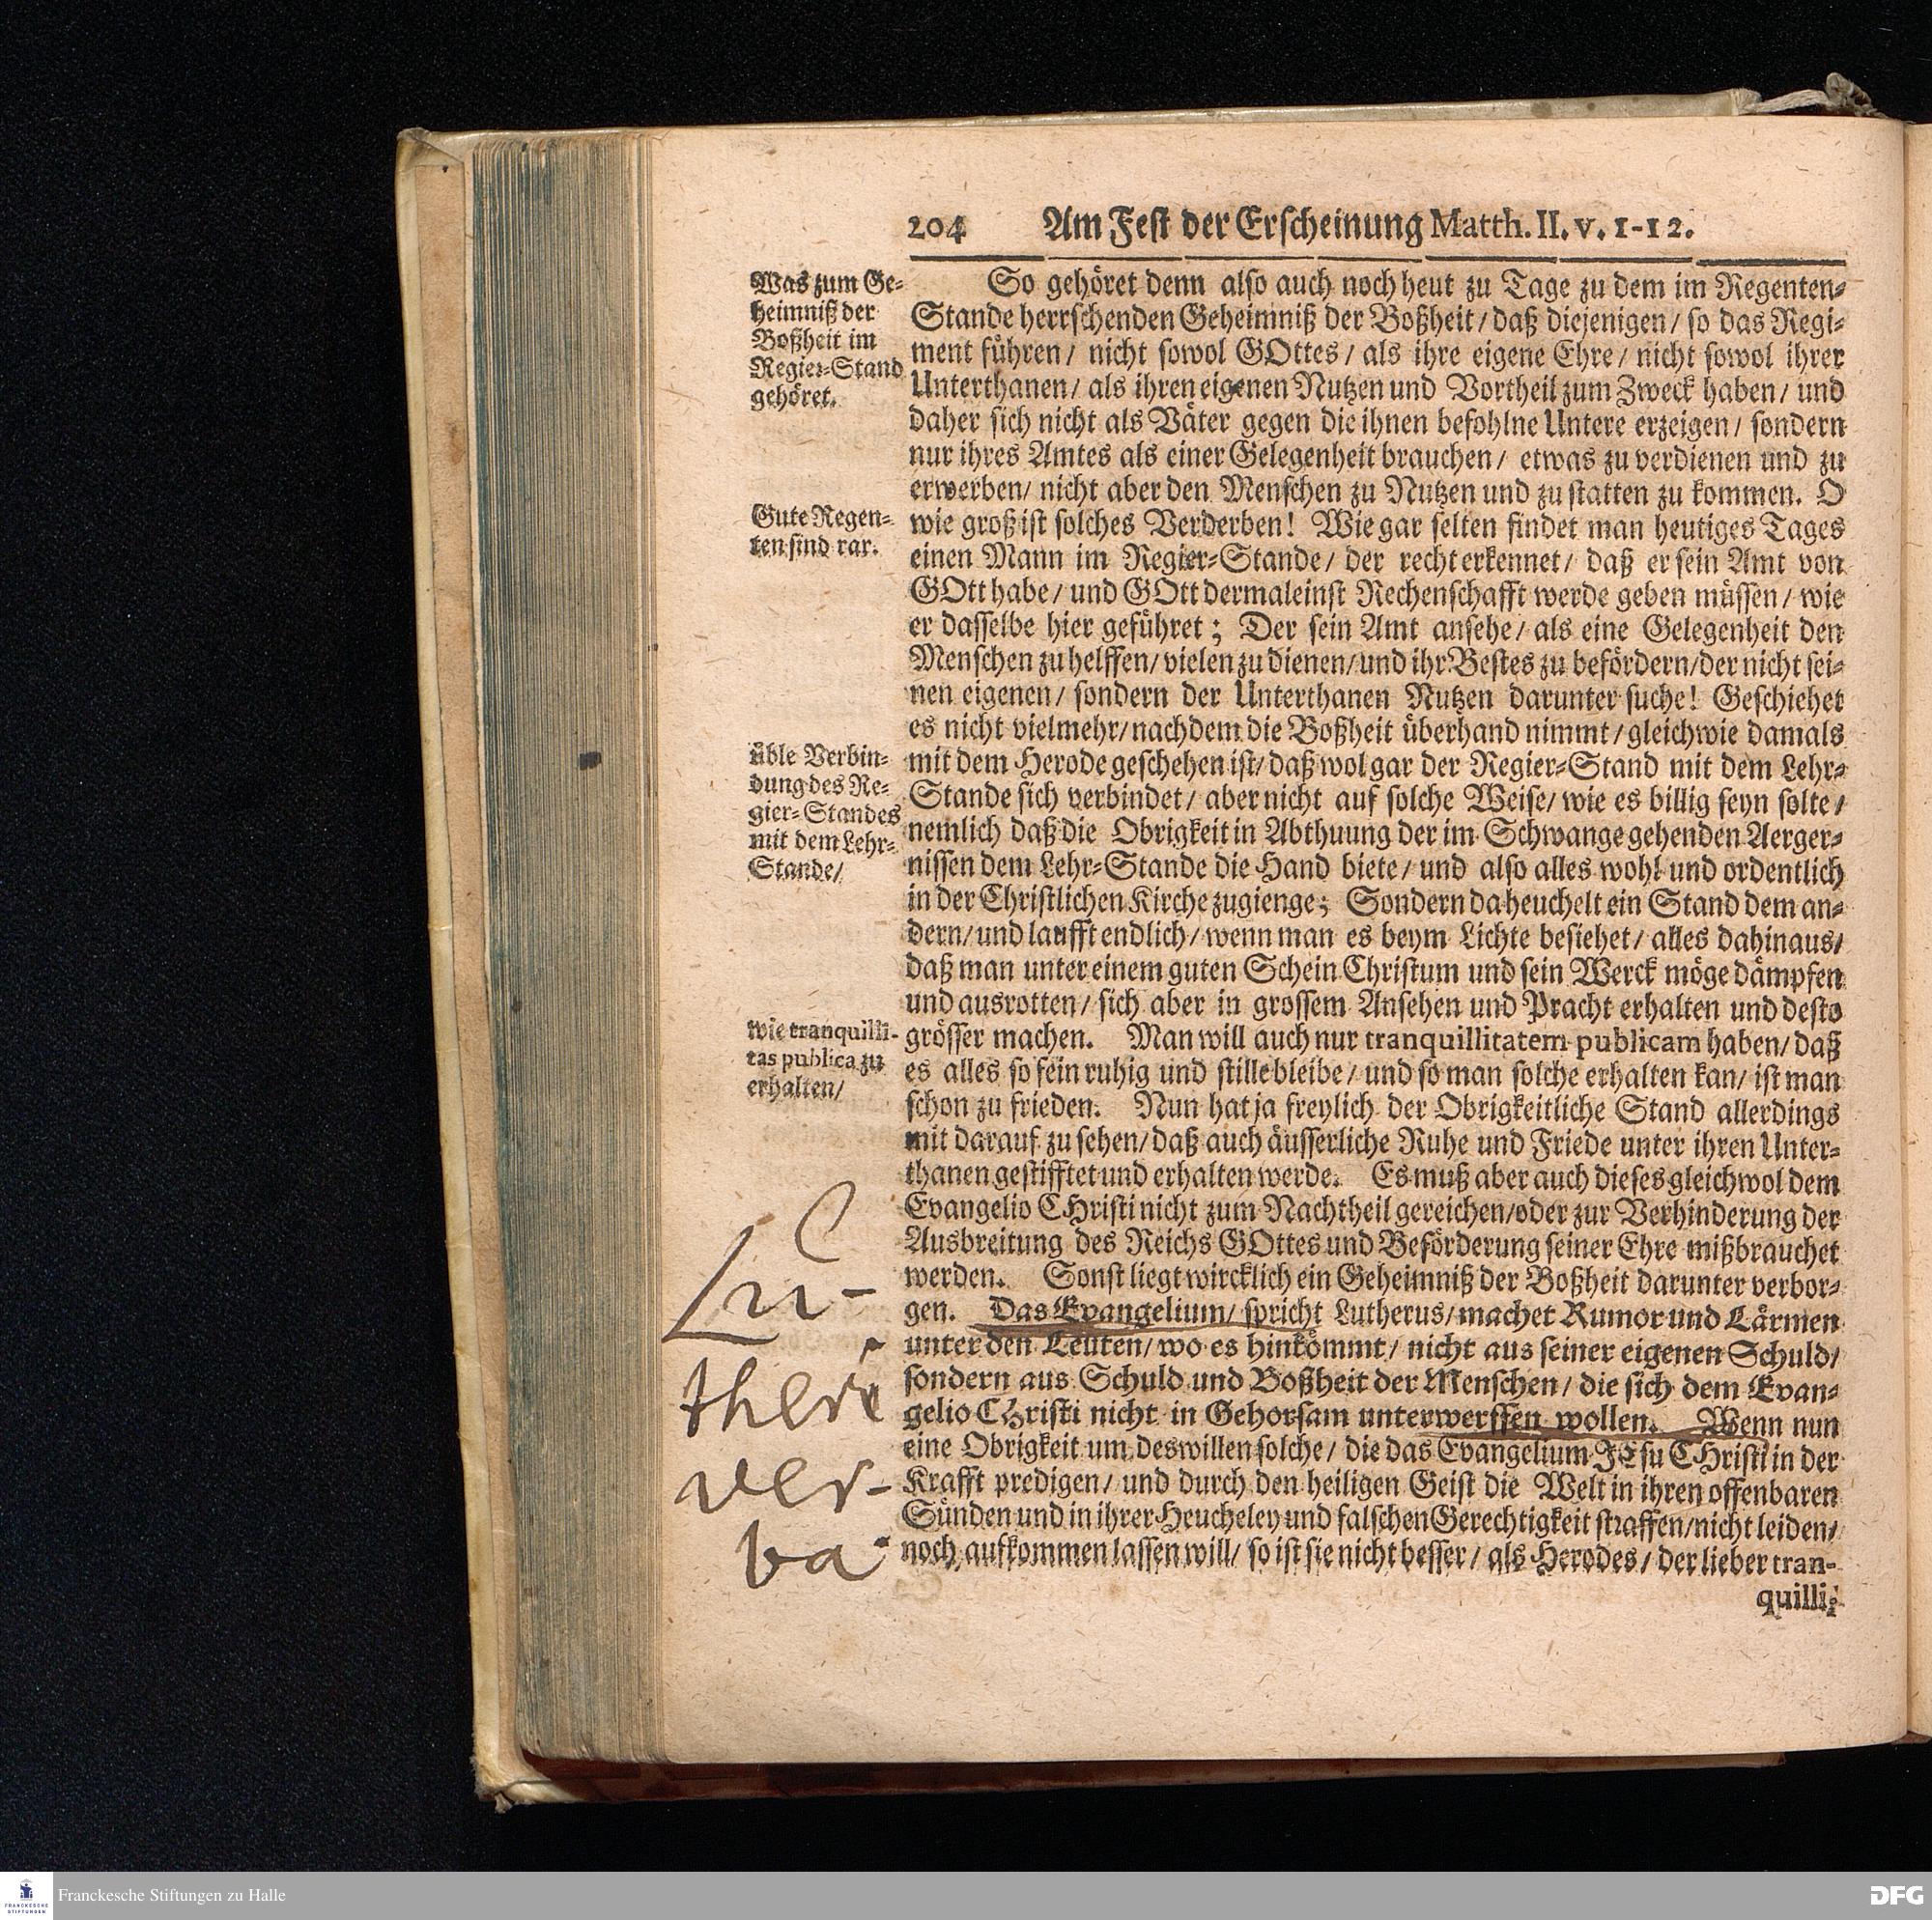 204 Am Fest der Erscheinung Matth. II. v. 1-12.
Was zum Ge-
heimniß der
Boßheit im
Regier-Stand
gehöret.
So gehöret denn also auch noch heut zu Tage zu dem im Regenten-
Stande herrschenden Geheimniß der Boßheit/ daß diejenigen/ so das Regi-
ment führen/ nicht sowol GOttes/ als ihre eigene Ehre/ nicht sowol ihrer
Unterthanen/ als ihren eigenen Nutzen und Vortheil zum Zweck haben/ und
daher sich nicht als Väter gegen die ihnen befohlne Untere erzeigen/ sondern
nur ihres Amtes als einer Gelegenheit brauchen/ etwas zu verdienen und zu
erwerben/ nicht aber den Menschen zu Nutzen und zu statten zu kommen. O
Gute Regen-
ten sind rar.
wie groß ist solches Verderben! Wie gar selten findet man heutiges Tages
einen Mann im Regier-Stande/ der recht erkennet/ daß er sein Amt von
GOtt habe/ und GOtt dermaleinst Rechenschafft werde geben müssen/ wie
er dasselbe hier geführet; Der sein Amt ansehe/ als eine Gelegenheit den
Menschen zu helffen/ vielen zu dienen/ und ihr Bestes zu befördern/ der nicht sei-
nen eigenen/ sondern der Unterthanen Nutzen darunter suche! Geschiehet
es nicht vielmehr/ nachdem die Boßheit überhand nimmt/ gleichwie damals
üble Verbin-
dung des Re-
gier-Standes
mit dem Lehr-
Stande/
mit dem Herode geschehen ist/ daß wol gar der Regier-Stand mit dem Lehr-
Stande sich verbindet/ aber nicht auf solche Weise/ wie es billig seyn solte/
nemlich daß die Obrigkeit in Abthuung der im Schwange gehenden Aerger-
nissen dem Lehr-Stande die Hand biete/ und also alles wohl und ordentlich
in der Christlichen Kirche zugienge; Sondern da heuchelt ein Stand dem an-
dern/ und laufft endlich/ wenn man es beym Lichte besiehet/ alles dahinaus/
daß man unter einem guten Schein Christum und sein Werck möge dämpfen
und ausrotten/ sich aber in grossem Ansehen und Pracht erhalten und desto
wie tranquilli-
tas publica zu
erhalten/
grösser machen. Man will auch nur tranquillitatem publicam haben/ daß
es alles so fein ruhig und stille bleibe/ und so man solche erhalten kan/ ist man
schon zu frieden. Nun hat ja freylich der Obrigkeitliche Stand allerdings
mit darauf zu sehen/ daß auch äusserliche Ruhe und Friede unter ihren Unter-
thanen gestifftet und erhalten werde. Es muß aber auch dieses gleichwol dem
Evangelio CHristi nicht zum Nachtheil gereichen/ oder zur Verhinderung der
Ausbreitung des Reichs GOttes und Beförderung seiner Ehre mißbrauchet
werden. Sonst liegt wircklich ein Geheimniß der Boßheit darunter verbor-
gen. Das Evangelium/ spricht Lutherus/ machet Rumor und Lärmen
unter den Leuten/ wo es hinkömmt/ nicht aus seiner eigenen Schuld/
sondern aus Schuld und Boßheit der Menschen/ die sich dem Evan-
gelio CHristi nicht in Gehorsam unterwerffen wollen. Wenn nun
eine Obrigkeit um deswillen solche/ die das Evangelium JEsu CHristi in der
Krafft predigen/ und durch den heiligen Geist die Welt in ihren offenbaren
Sünden und in ihrer Heucheley und falschen Gerechtigkeit straffen/ nicht leiden/
noch aufkommen lassen will/ so ist sie nicht besser/ als Herodes/ der lieber tran-
quilli-
Lu-
theri
ver-
ba
Franckesche Stiftungen zu Halle
FRANCKESCHE
STIFTUNGEN
DFG